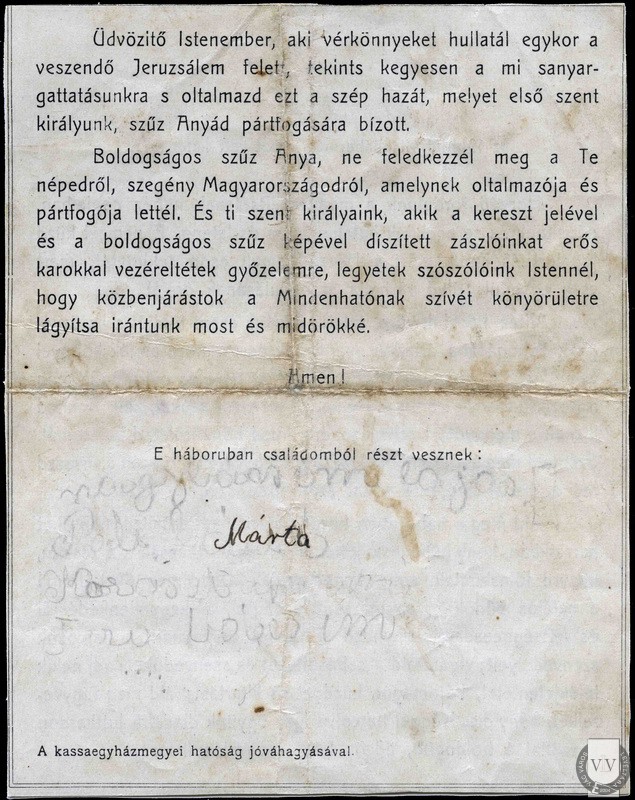 Üdvözitő Istenember, aki vérkönnyeket hullatál egykor a
veszendő Jeruzsálem felett, tekints kegyesen a mi sanyar-
gattatásunkra s oltalmazd ezt a szép hazát, melyet első szent
királyunk, szűz Anyád pártfogására bízott.
Boldogságos szűz Anya, ne feledkezzél meg a Te
népedről, szegény Magyarországodról, amelynek oltalmazója és
pártfogója lettél. És ti szent királyaink, akik a kereszt jelével
és a boldogságos szűz képével díszített zászlóinkat erős
karokkal vezéreltétek győzelemre, legyetek szószólóink Istennél,
hogy közbenjárástok a Mindenhatónak szívét könyörületre
lágyítsa irántunk most és midörökké.
Amen!
E háboruban családomból részt vesznek:
Márta
A kassaegyházmegyei hatóság jóváhagyásával.
V.V